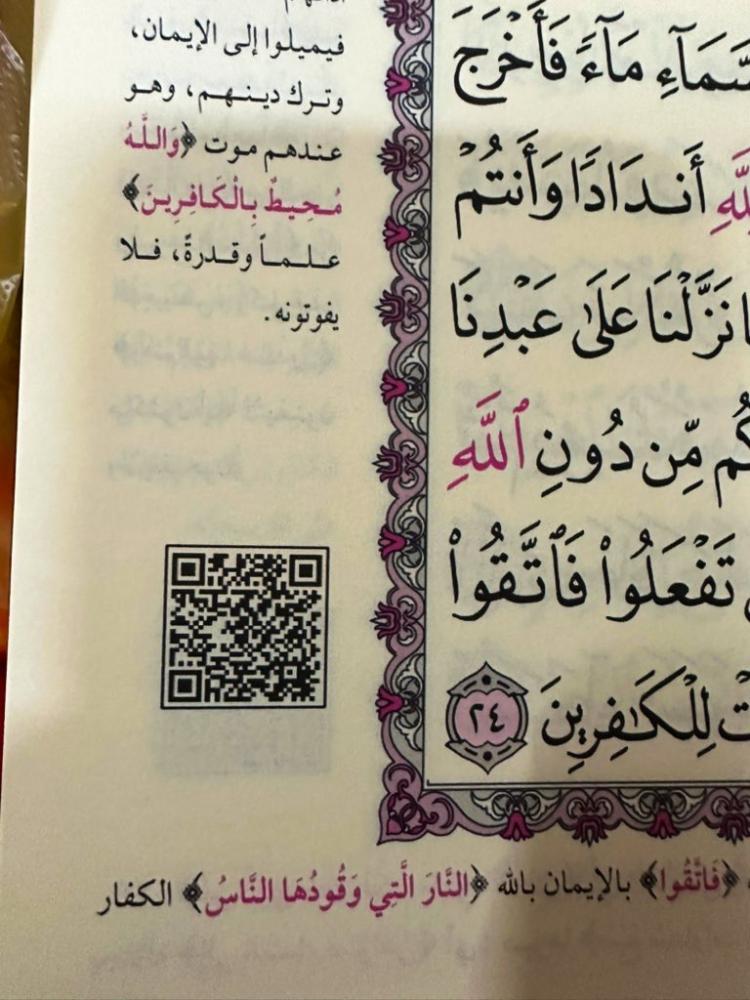 فيميلوا إلى الإيمان،
وترك دينهم، وهو
عندهم موت ﴿وَاللَّهُ
مُحِيطٌ بِالْكَافِرِينَ﴾
علماً وقدرةً، فلا
يفوتونه.
مَآءً فَأَخْرَجَ
أَندَادًا وَأَنتُمْ
نَزَّلْنَا عَلَىٰ عَبْدِنَا
مِّن دُونِ ٱللَّهِ
تَفْعَلُوا۟ فَٱتَّقُوا۟
لِلْكَـٰفِرِينَ ٢٤
﴿فَاتَّقُوا﴾ بالإيمان بالله ﴿النَّارَ الَّتِي وَقُودُهَا النَّاسُ﴾ الكفار